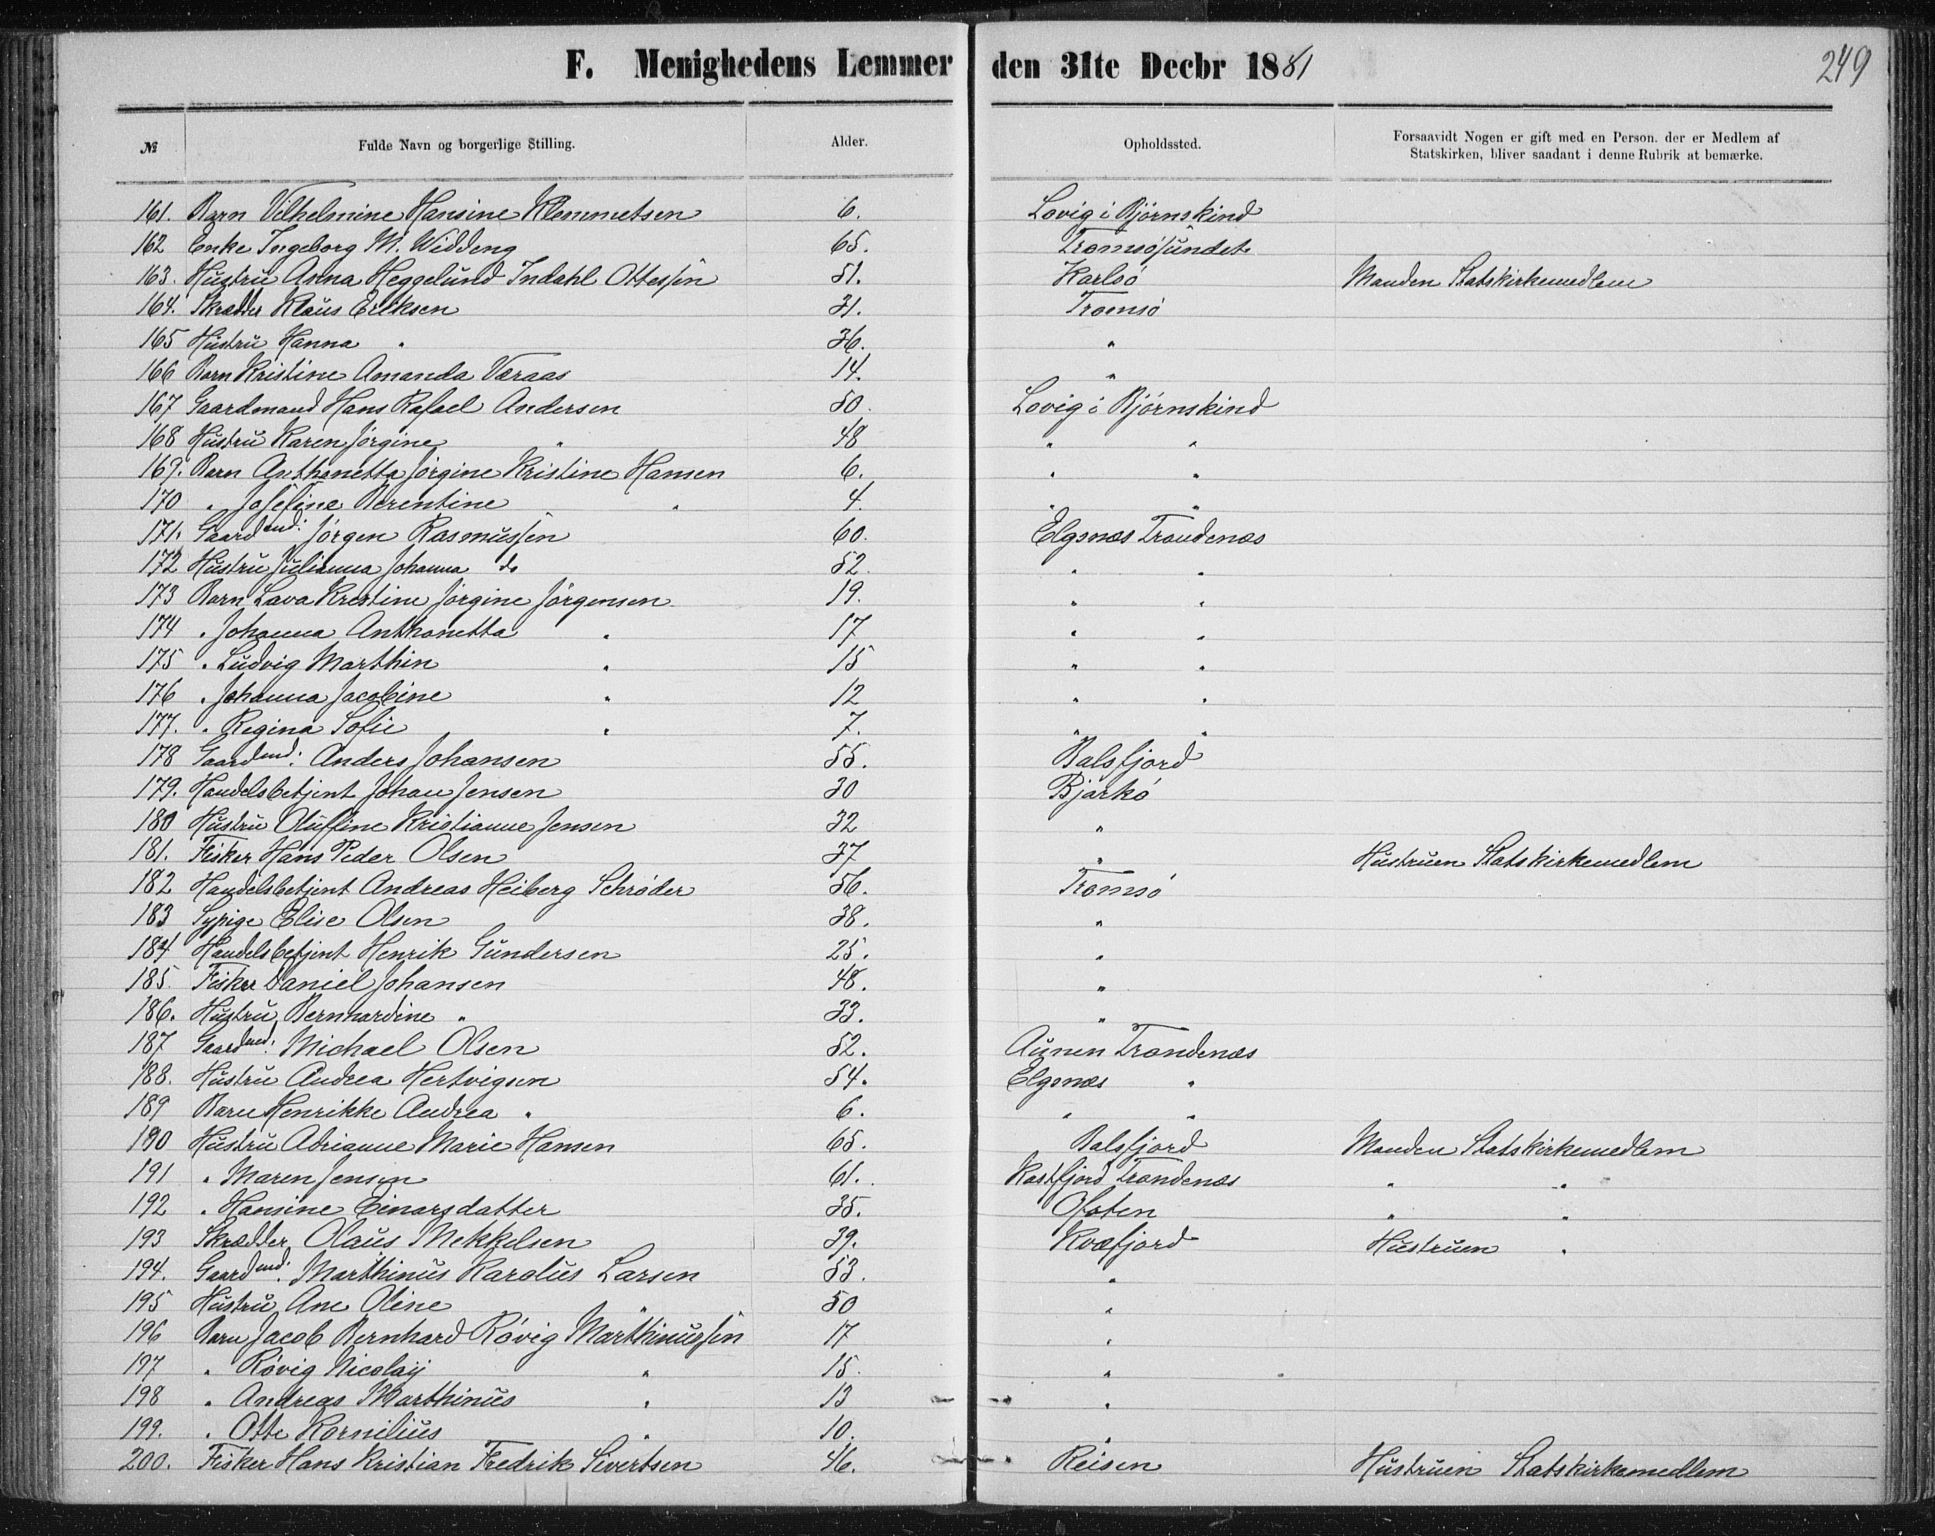 F. Menighedens Lemmer den 31te Decbr 1881
249
№ Fulde Navn og borgerlige Stilling. Alder. Opholdssted. Forsaavidt Nogen er gift med en Person. der er Medlem af
Statskirken, bliver saadant i denne Rubrik at bemærke.
161. Barn Vilhelmine Hansine Klemmetsen 6. Lovig i Bjørnskind
162 Enke Ingeborg M. Widding 65. Tromsøsundet
163. Hustru Anna Heggelund Indahl Ottessen 51. Karlsö Manden Statskirkemedlem
164. Skrædder Klaus Eriksen 31. Tromsö
165 Hustru Hanna " 36. "
166 Barn Kristine Amanda Væraas 14. "
167 Gaardmand Hans Rafael Andersen 50. Lovig i Bjørnskind
168 Hustru Karen Jörgine " 48 " "
169. Barn Anthonetta Jörgine Kristine Hansen 6. " "
170 " Josefine Berentine " 4. " "
171. Gaardmd: Jörgen Rasmussen 60. Elgsnæs Trondenæs
172 Hustru Julianna Johanna do 52. " "
173 Barn Lava Kristine Jörgine Jörgensen 19. " "
174 " Johanna Anthonetta " 17 " "
175 " Ludvig Marthin " 15 " "
176 " Johanna Jacobine " 12 " "
177. " Regina Sofie " 7. " "
178 Gaardmd: Anders Johansen 55. Balsfjord
179. Handelsbetjent Johan Jensen 30 Bjarkö
180 Hustru Oluffine Kristianne Jensen 32 "
181. Fisker Hans Peder Olsen 37 " Hustruen Statskirkemedlem
182 Handelsbetjent Andreas Heiberg Schrøder 56. Tromsö
183 Sypige Elise Olsen 38. "
184 Handelsbetjent Henrik Gundersen 25. "
185. Fisker Daniel Johansen 48. "
186. Hustru Bernhardine " 33. "
187 Gaardmd: Michael Olsen 52. Aunen Trondenæs
188. Hustru Andrea Hertvigsen 54. Elgsnæs "
189 Barn Henrikke Andrea " 6. " "
190 Hustru Adrianne Marie Hansen 65. Balsfjord Manden Statskirkemedlem
191 " Maren Jensen 61. Kastfjord Trondenæs " "
192 " Hansine Einarsdatter 35. Ofoten " "
193 Skrædder Olaus Mekkelsen 39. Kvæfjord Hustruen "
194. Gaardmd: Marthinus Karolus Larsen 53. "
195 Hustru Ane Oline " 50 "
196 Barn Jacob Bernhard Rövig Marthinussen 17 "
197 " Rövig Nicolaij " 15. "
198 " Andreas Marthinus " 13 "
199. " Otte Kornilius " 10. "
200. Fisker Hans Kristian Fredrik Sivertsen 46. Reisen Hustruen Statskirkemedlem